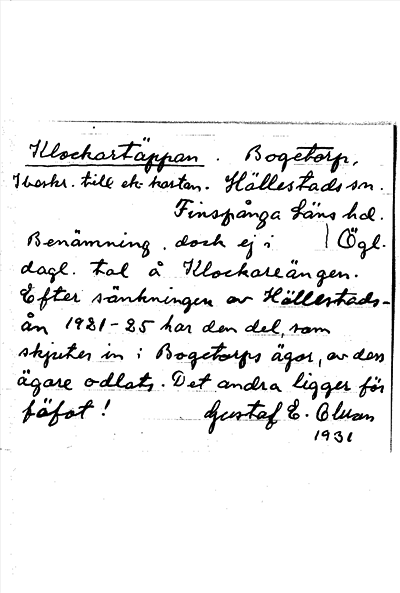 Klockartäppan. Bogetorp,
I beskr. till ek. kartan. Hällestads sn.
Finspånga läns hd.
Benämning, dock ej i Ögl.
dagl. tal å Klockareängen.
Efter sänkningen av Hällestads-
ån 1921-25 har den del, som
skjuter in i Bogetorps ägor, av dess
ägare odlats. Det andra ligger för
fäfot! Gustaf E.
1931